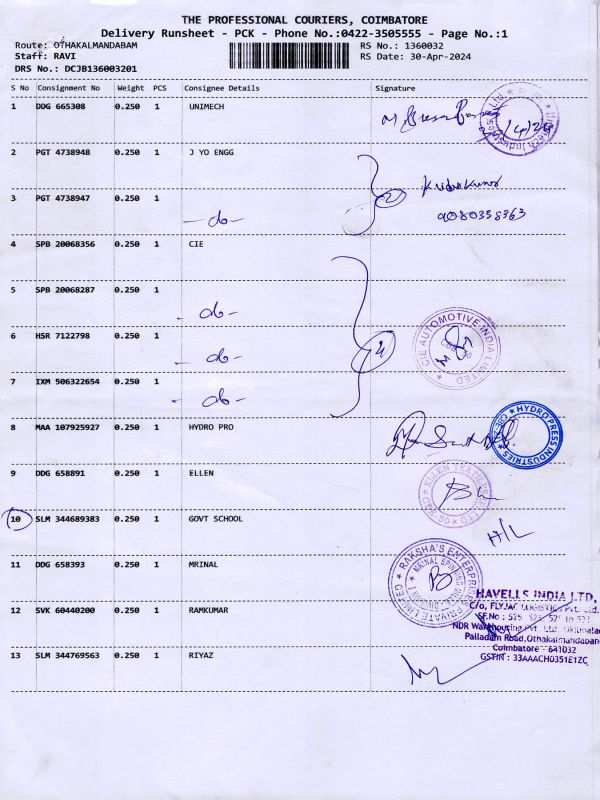 THE PROFESSIONAL COURIERS, COIMBATORE
Delivery Runsheet - PCK - Phone No.:0422-3505555 - Page No.:1
Route: OTHAKALMANDABAM
RS No.: 1360032
Staff: RAVI
RS Date: 30-Apr-2024
DRS No.: DCJB136003201
S No Consignment No Weight PCS Consignee Details Signature
1 DDG 665308 0.250 1 UNIMECH
2 PGT 4738948 0.250 1 J YO ENGG
3 PGT 4738947 0.250 1 -do- 2
9080358363
4 SPB 20068356 0.250 1 CIE
5 SPB 20068287 0.250 1 -do-
6 HSR 7122798 0.250 1 -do- 4
CIE AUTOMOTIVE INDIA LIMITED
7 IXM 506322654 0.250 1 -do-
8 MAA 107925927 0.250 1 HYDRO PRO
HYDRO PRESS INDUSTRIES
9 DDG 658891 0.250 1 ELLEN
10 SLM 344689383 0.250 1 GOVT SCHOOL H/L
11 DDG 658393 0.250 1 MRINAL
RAKSHA'S ENTERPRISES PRIVATE LIMITED
12 SVK 60440200 0.250 1 RAMKUMAR
HAVELLS INDIA LTD,
C/o, FLYJAC LOGISTICS Pvt. Ltd.
NDR Warehousing Pvt. Ltd.
Palladam Road,Othakalmandabam
Coimbatore - 641032
GSTIN : 33AAACH0351E1ZC
13 SLM 344769563 0.250 1 RIYAZ